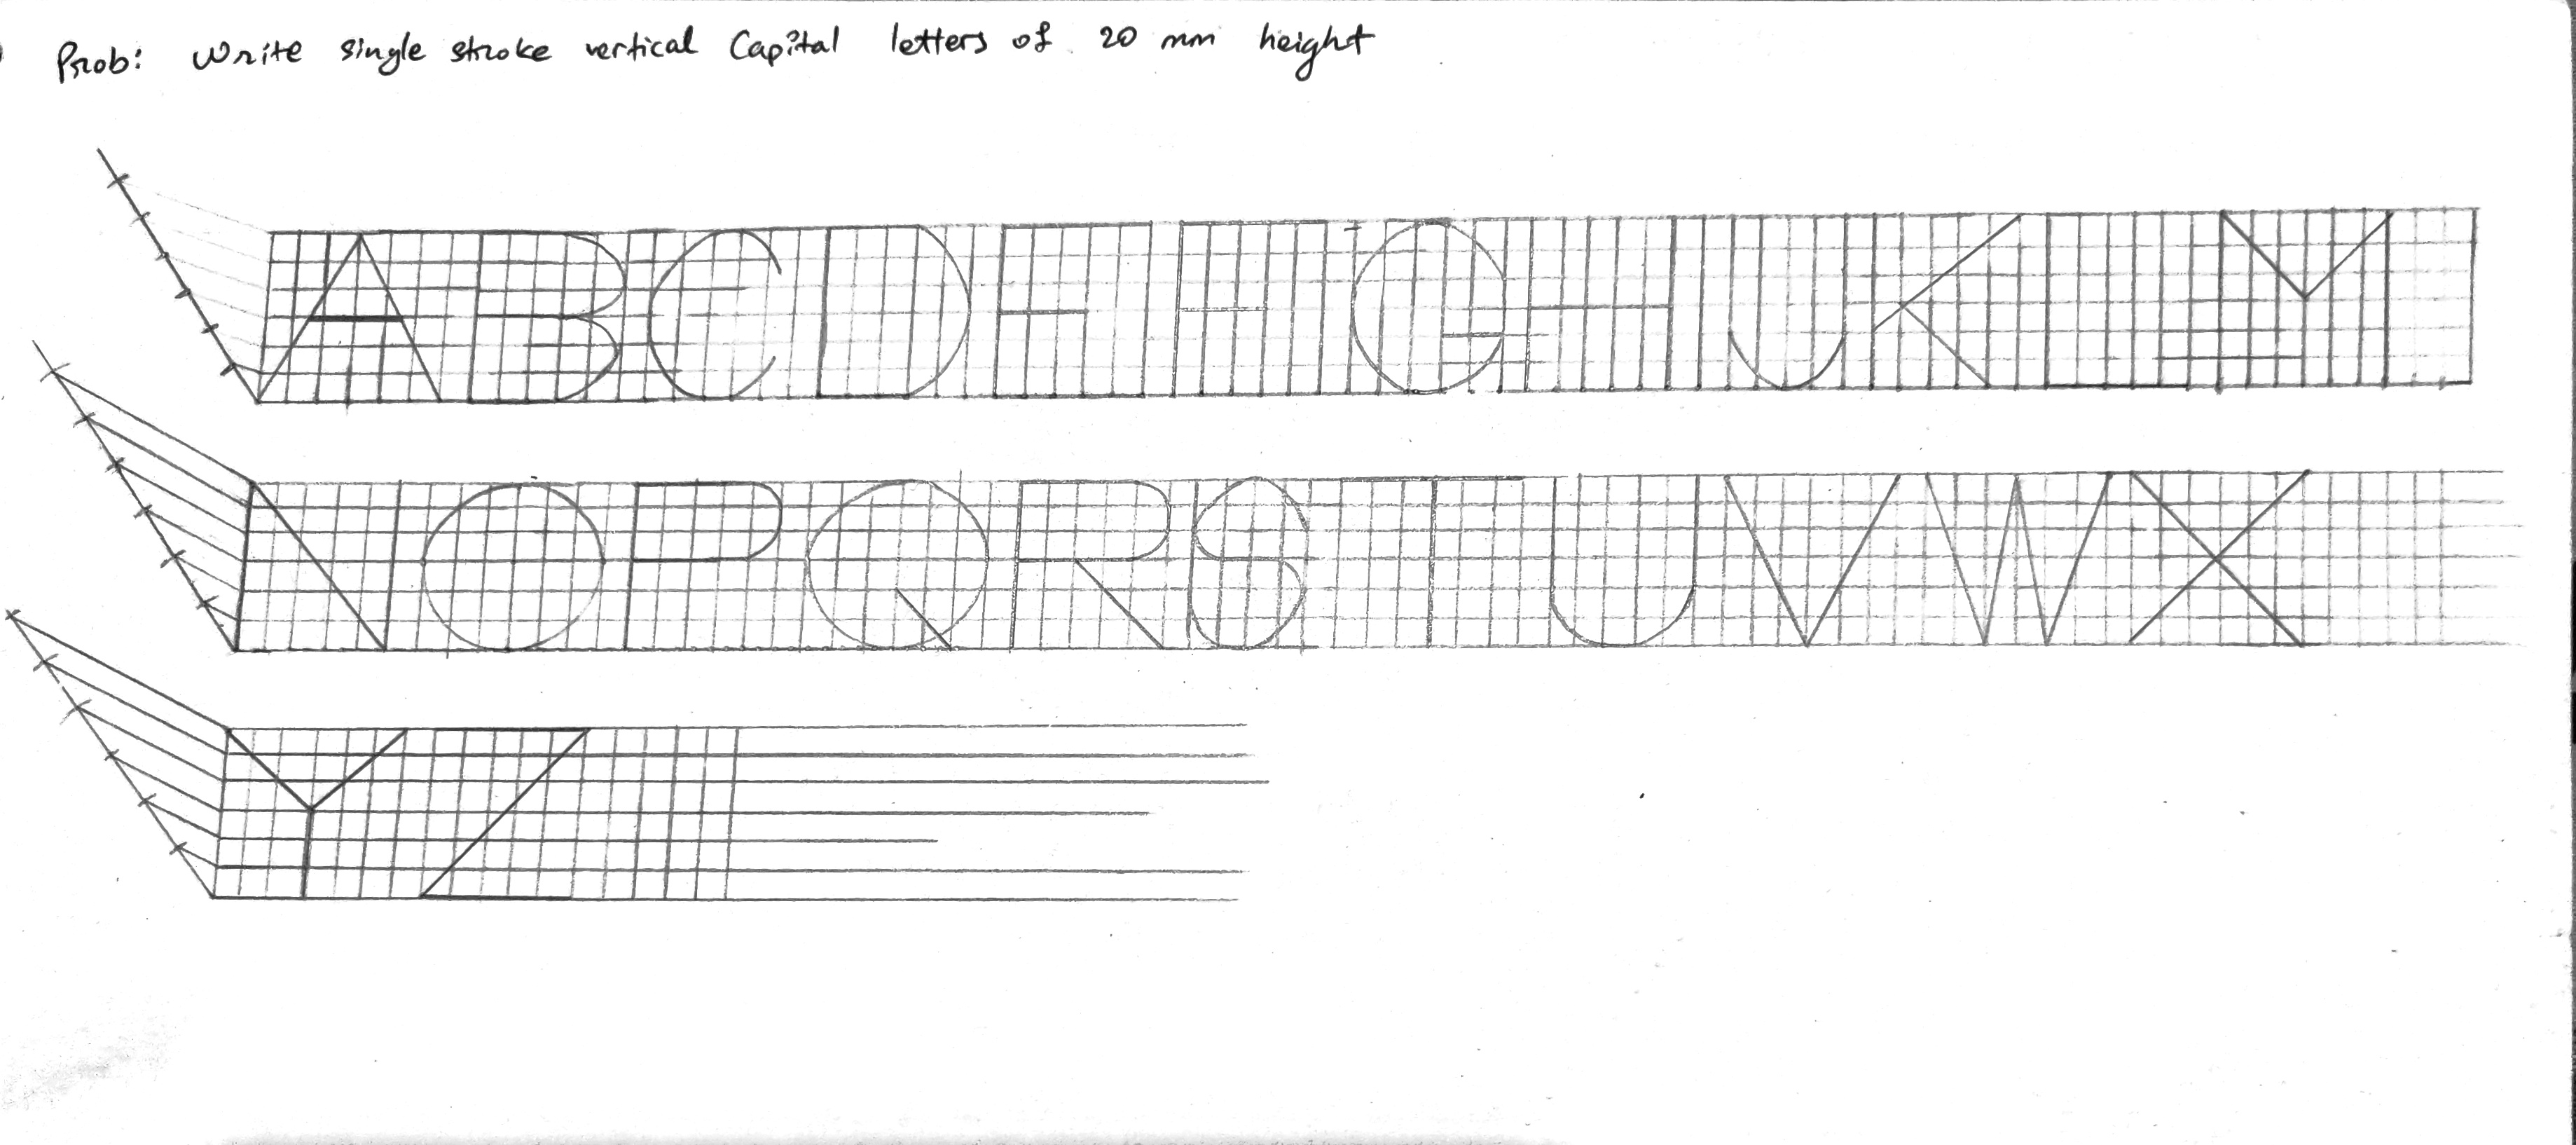 Prob: Write single stroke vertical Capital letters of 20 mm height
A B C D E F G H I J K L M
N O P Q R S T U V W X
Y Z